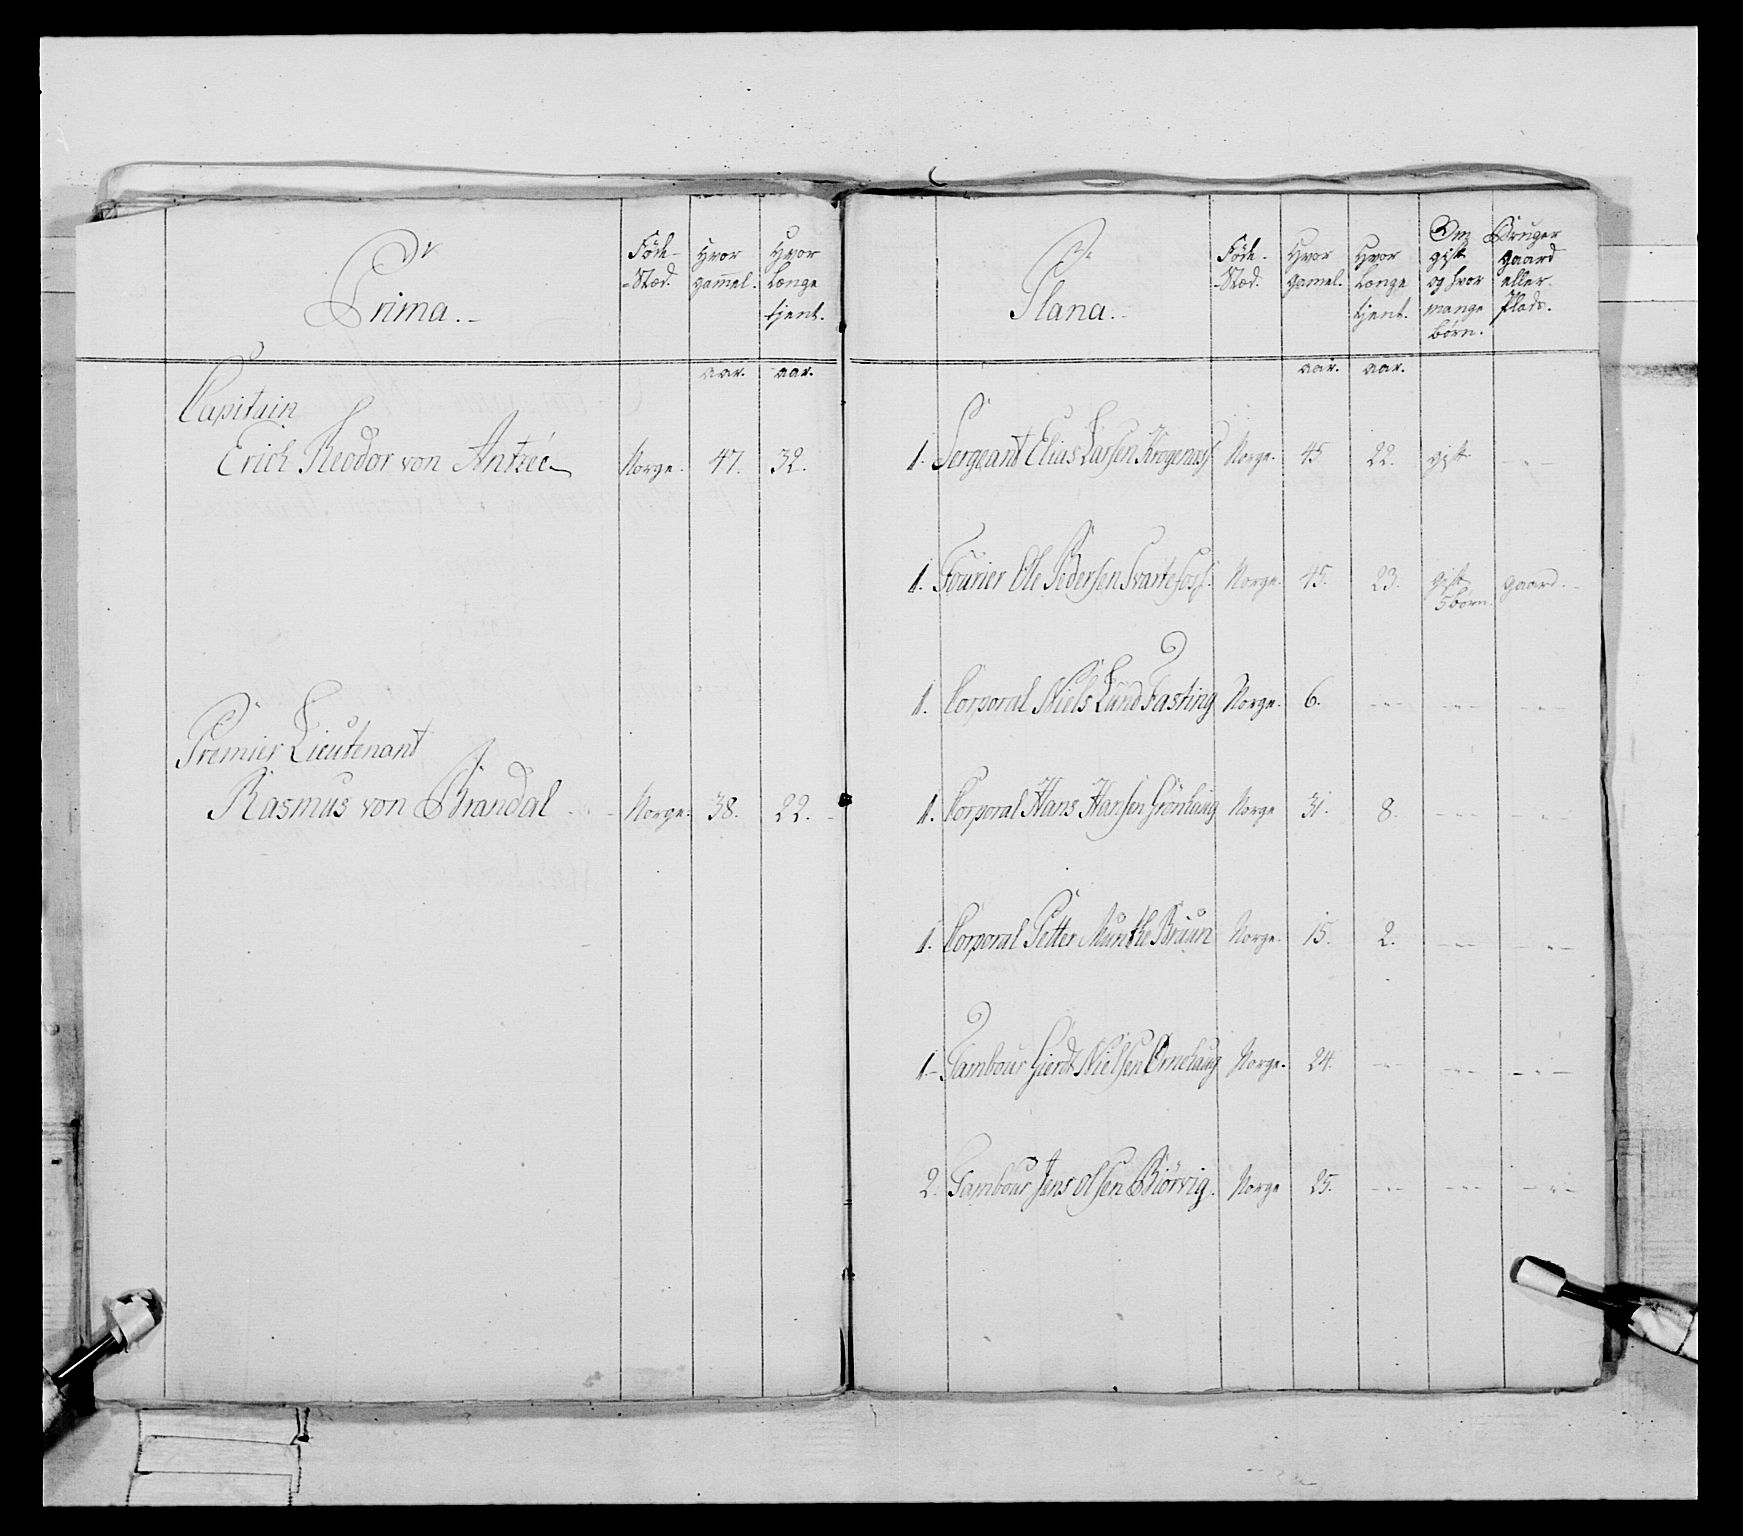 Prima.
Føde-
-Stæd.
Hvor
gamel.
Hvor
Længe
tjent.
aar.
aar.
Capitain
Erich Theodor von Antzée Norge. 47. 32.
Premier Lieutenant
Rasmus von Brandal Norge. 38. 22.
Plana.
Føde-
-Stæd.
Hvor
gamel.
Hvor
Længe
tjent.
Om
gift
og hvor
mange
børn.
Bruger
gaard
eller
Plads.
aar.
aar.
1. Sergeant Elias Larsen Norge. 45 22. gift - " -
1. Fourier Ole Pedersen Svartefoss. Norge. 45. 23. gift gaard.
5 børn.
1. Corporal Niels Lund Fasting Norge. 6. - " - - " - - " -
1. Corporal Hans Hansen Grönhaug Norge 31. 8. - " - - " -
1. Corporal Petter Munthe Bruun Norge. 15. 2. - " - - " -
1. Tambour Gierdt Nielsen Ornehaug Norge. 24. - " - - " - - " -
2. Tambour Jens Olsen Biørvig. Norge 25. - " - - " - - " -